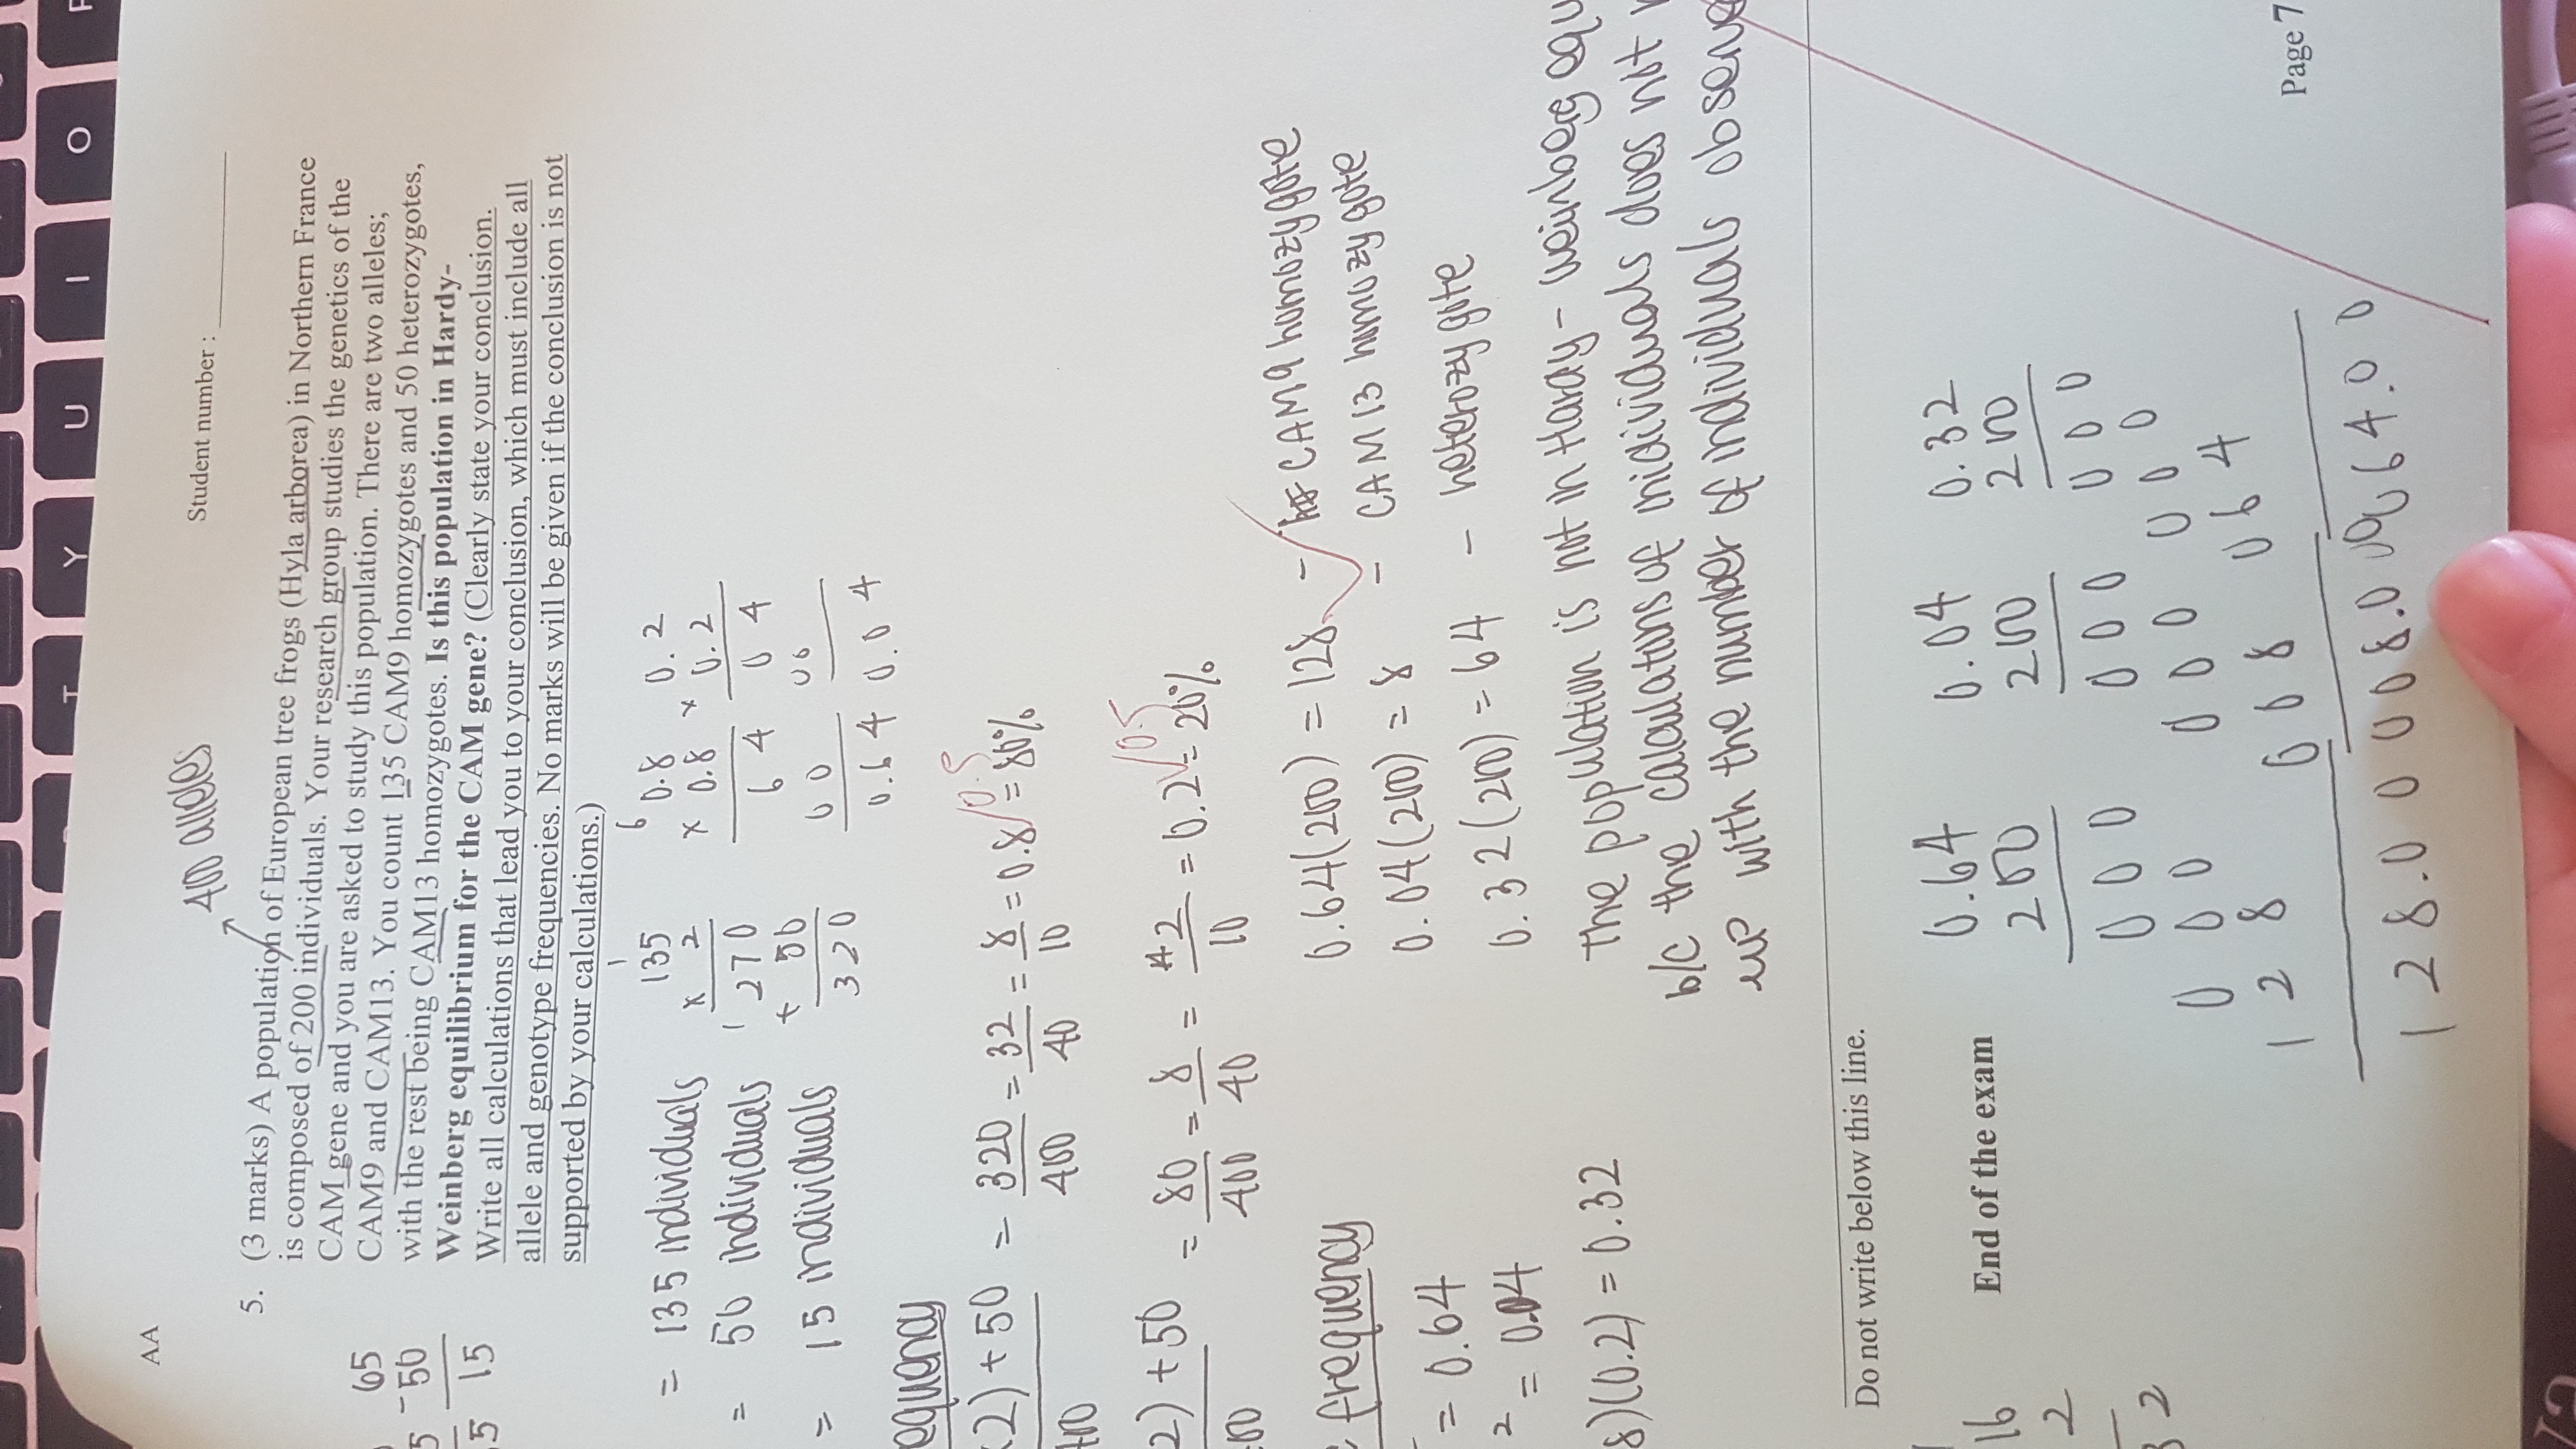 AA
Student number :
400 alleles
5. (3 marks) A population of European tree frogs (Hyla arborea) in Northern France
is composed of 200 individuals. Your research group studies the genetics of the
CAM gene and you are asked to study this population. There are two alleles;
CAM9 and CAM13. You count 135 CAM9 homozygotes and 50 heterozygotes,
with the rest being CAM13 homozygotes. Is this population in Hardy-
Weinberg equilibrium for the CAM gene? (Clearly state your conclusion.
Write all calculations that lead you to your conclusion, which must include all
allele and genotype frequencies. No marks will be given if the conclusion is not
supported by your calculations.)
65
-50
15
= 135 individuals
= 50 individuals
= 15 individuals
1
135
x 2
1
270
+ 50
320
6
0.8
x 0.8
6 4
0 0
0.6 4
0.2
x 0.2
0 4
0 0
0.0 4
equency
2) + 50 = 320/400 = 32/40 = 8/10 = 0.8 = 80%
400
0.5
2) + 50 = 80/400 = 8/40 = 2/10 = 0.2 = 20%
0.5
frequency
= 0.64
2 = 0.04
8)(0.2) = 0.32
0.64(200) = 128 - CAM9 homozygote
0.04(200) = 8 - CAM13 homozygote
0.32(200) = 64 - heterozygote
The population is not in Hardy-Weinberg equ
b/c the calculations of individuals does not
up with the number of individuals observe
Do not write below this line.
End of the exam
16
2
3 2
0.64
200
0 0 0
0 0 0
1 2 8
1 2 8.0 0
0.04
200
0 0 0
0 0 0
0 0 8
0 0 8.0
0.32
200
0 0 0
0 0 0
0 6 4
0 6 4.0 0
Page 7
O
I
U
Y
T